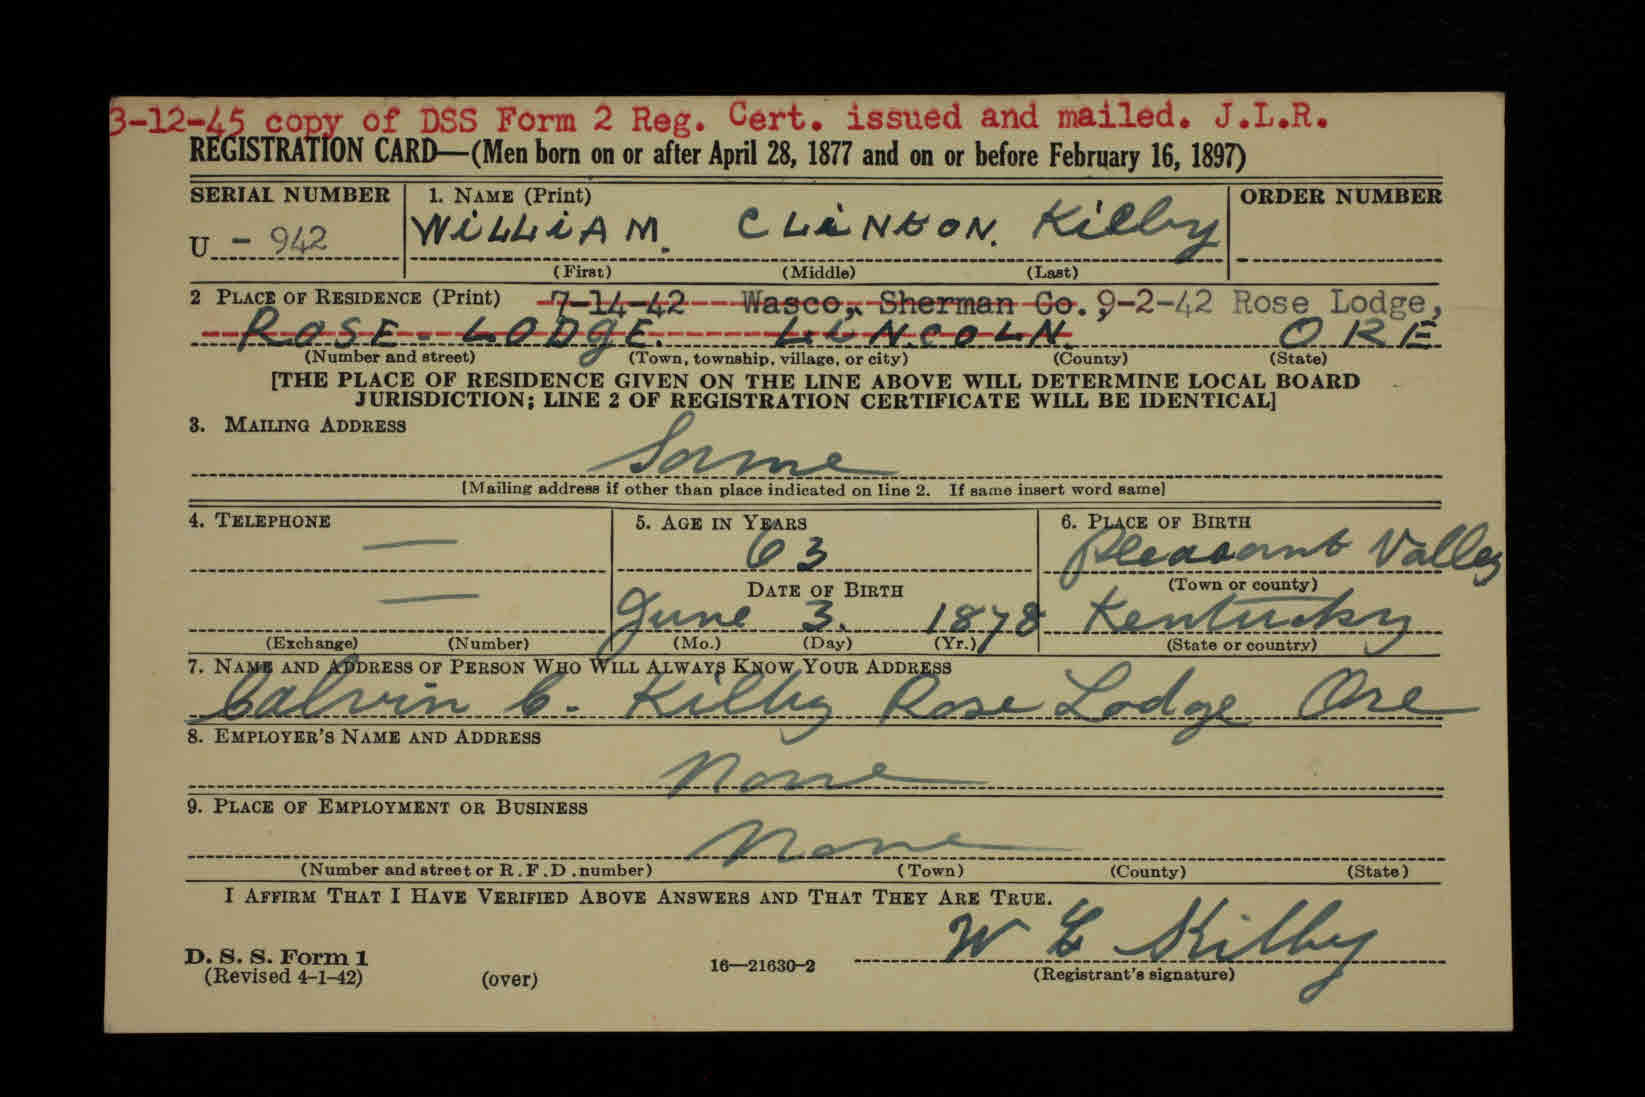 3-12-45 copy of DSS Form 2 Reg. Cert. issued and mailed. J.L.R.
REGISTRATION CARD—(Men born on or after April 28, 1877 and on or before February 16, 1897)
SERIAL NUMBER 1. NAME (Print) ORDER NUMBER
U - 942 WiLLiAM. CLiNtON. Kilby
(First) (Middle) (Last)
2 PLACE OF RESIDENCE (Print) 7-14-42 Wasco, Sherman Co. 9-2-42 Rose Lodge,
ROSE - LODgE. LiNCOLN. ORE
(Number and street) (Town, township, village, or city) (County) (State)
[THE PLACE OF RESIDENCE GIVEN ON THE LINE ABOVE WILL DETERMINE LOCAL BOARD
JURISDICTION; LINE 2 OF REGISTRATION CERTIFICATE WILL BE IDENTICAL]
3. MAILING ADDRESS
Same
[Mailing address if other than place indicated on line 2. If same insert word same]
4. TELEPHONE 5. AGE IN YEARS 6. PLACE OF BIRTH
— 63 Pleasant Valley
DATE OF BIRTH (Town or county)
— June 3. 1878 Kentucky
(Exchange) (Number) (Mo.) (Day) (Yr.) (State or country)
7. NAME AND ADDRESS OF PERSON WHO WILL ALWAYS KNOW YOUR ADDRESS
Calvin C. Kilby Rose Lodge Ore
8. EMPLOYER'S NAME AND ADDRESS
None
9. PLACE OF EMPLOYMENT OR BUSINESS
None
(Number and street or R. F. D. number) (Town) (County) (State)
I AFFIRM THAT I HAVE VERIFIED ABOVE ANSWERS AND THAT THEY ARE TRUE.
W C Kilby
D. S. S. Form 1
(Revised 4-1-42) (over) 16—21630-2 (Registrant's signature)